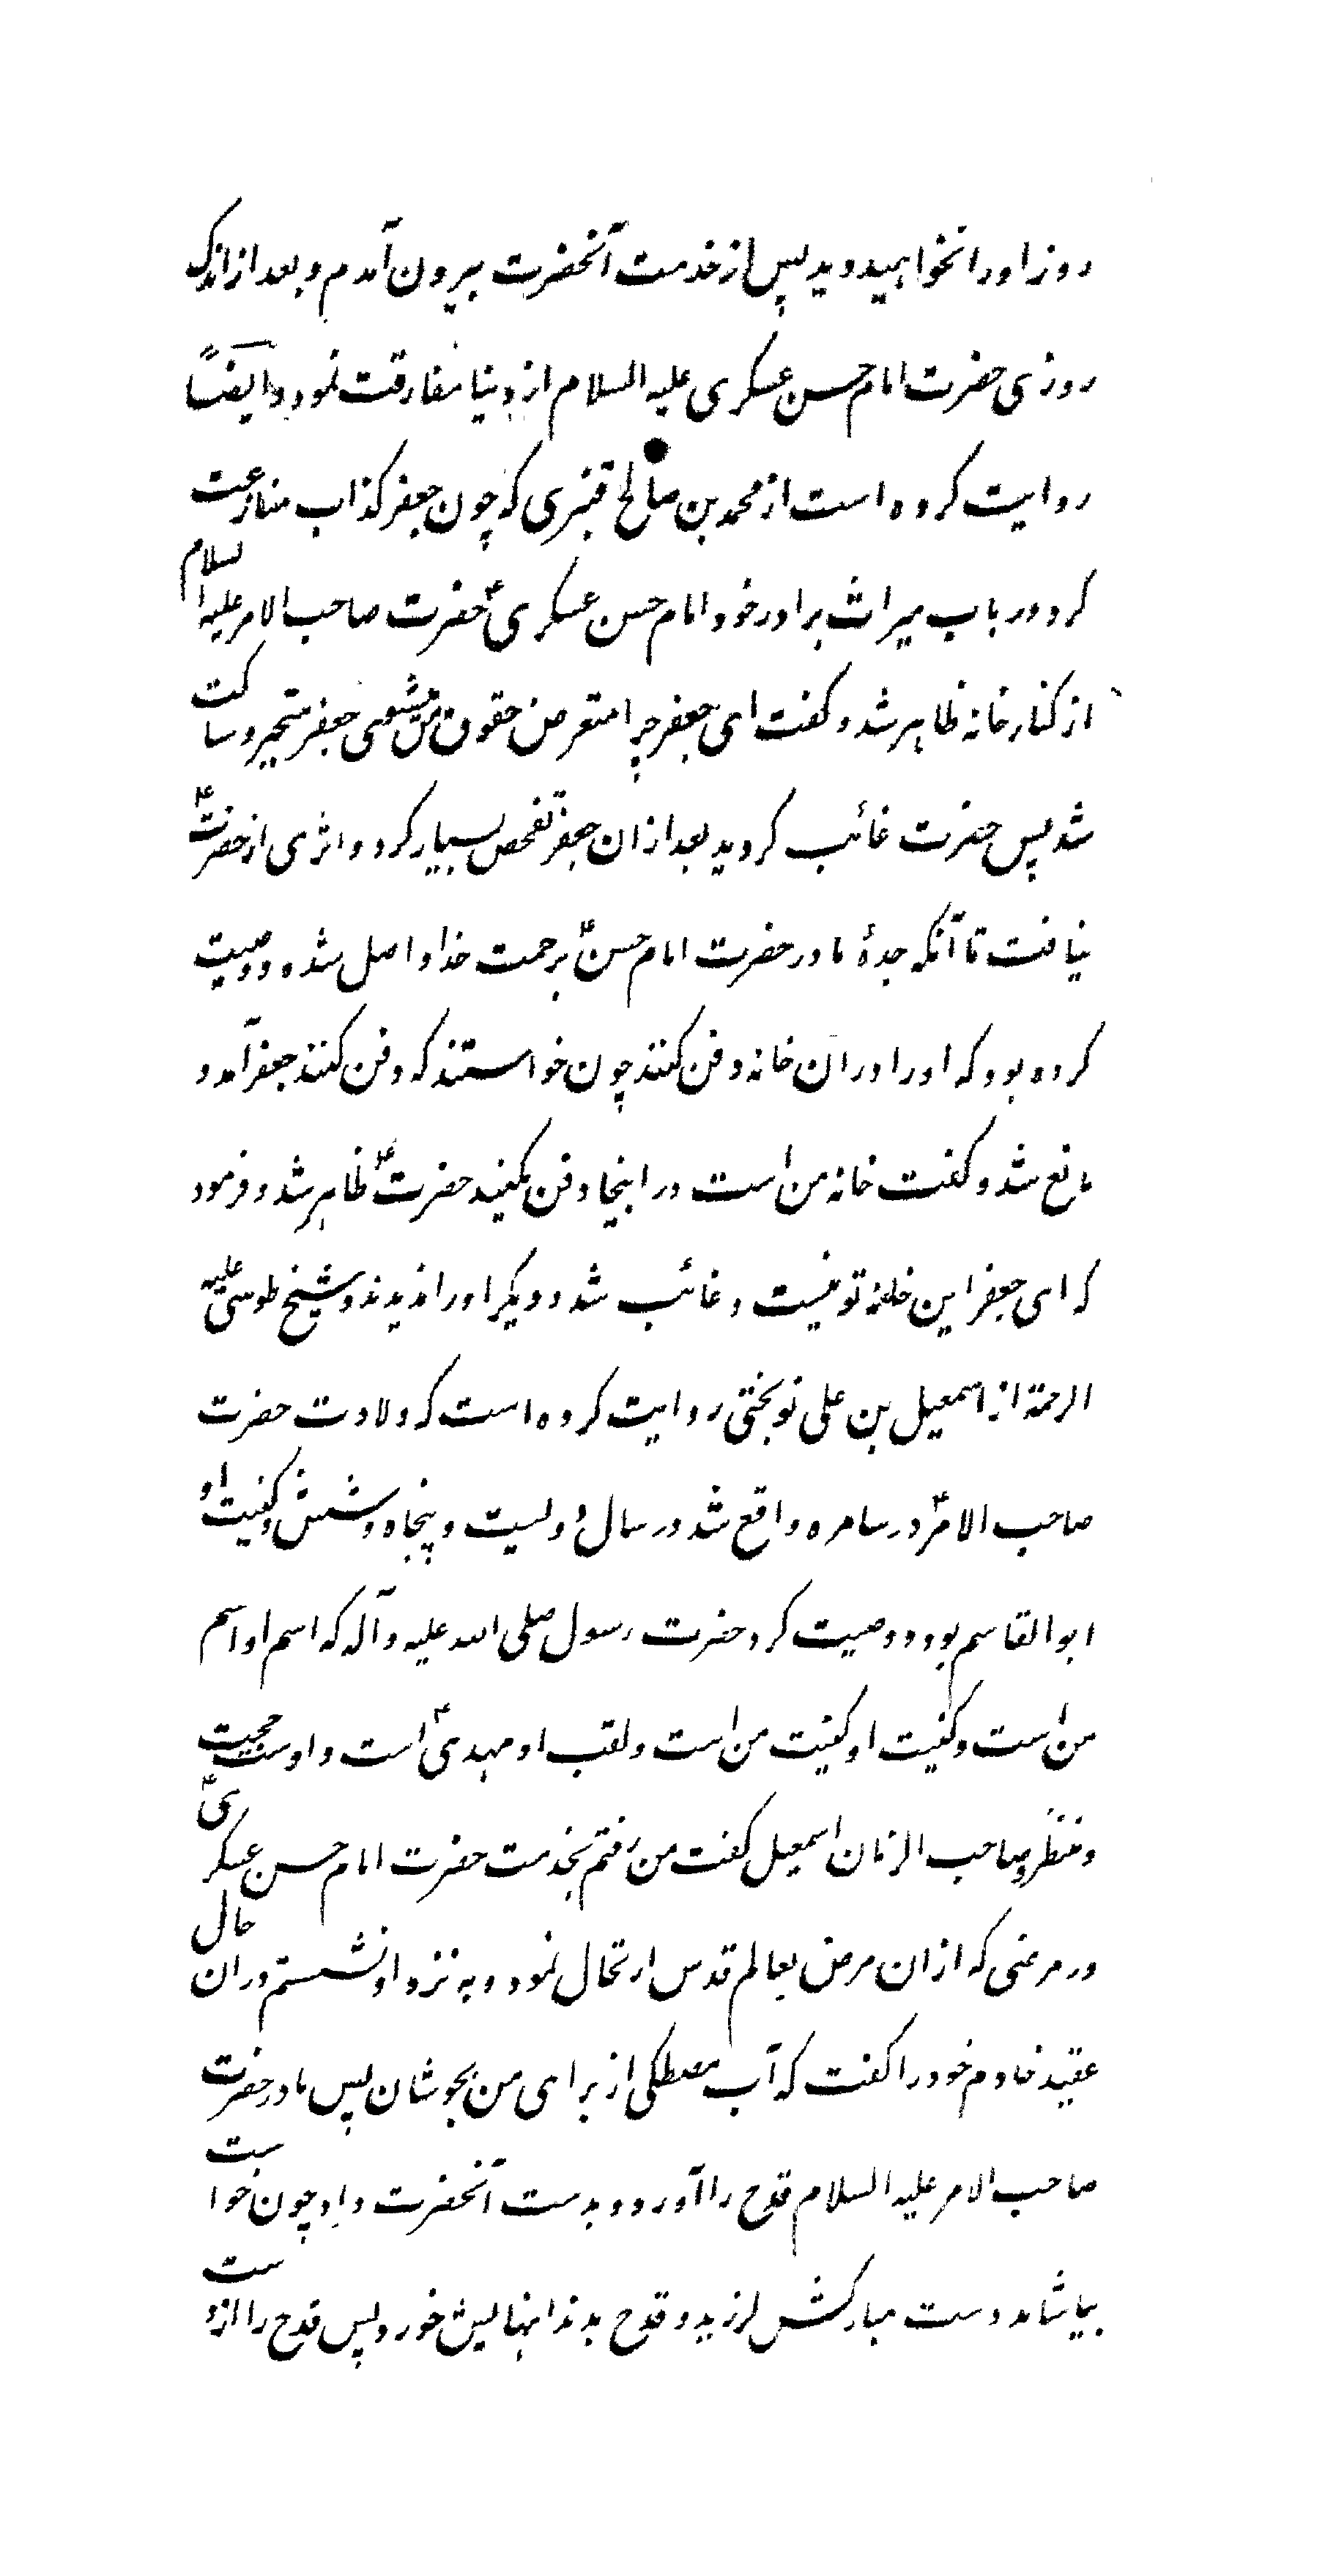 روز اورا نخواهید دید پس از خدمت آنحضرت بیرون آمدم و بعد از اندک
روزی حضرت امام حسن عسکری علیه السلام از دنیا مفارقت نمود و ایضاً
روایت کرده است از محمد بن صالح قنبری که چون جعفر کذاب منازعت
کرد در باب میراث برادر خود امام حسن عسکری؏ حضرت صاحب الامر علیه السلام
از کنار خانه ظاهر شد و گفت ای جعفر چرا متعرض حقوق من میشوی جعفر متحیر و ساکت
شد پس حضرت غائب گردید بعد ازان جعفر تفحص بسیار کرد و اثری از حضرت؏
نیافت تا آنکه جدهٔ مادر حضرت امام حسن؏ برحمت خدا واصل شده و وصیت
کرده بود که اورا دران خانه دفن کنند چون خواستند که دفن کنند جعفر آمد و
مانع شد و گفت خانه من است در اینجا دفن مکنید حضرت؏ ظاهر شد و فرمود
که ای جعفر این خانه تو نیست و غائب شد و دیگر اورا ندیدند و شیخ طوسی علیه
الرحمة از اسمعیل بن علی نوبختی روایت کرده است که ولادت حضرت
صاحب الامر؏ در سامره واقع شد در سال دولیست و پنجاه و شش و کنیت او
ابو القاسم بود و وصیت کرد حضرت رسول صلی الله علیه و آله که اسم او اسم
من است و کنیت او کنیت من است و لقب او مهدی؏ است و اوست حجت
و منتظر و صاحب الزمان اسمعیل گفت من رفتم بخدمت حضرت امام حسن عسکری؏
در مرضی که ازان مرض بعالم قدس ارتحال نمود و به نزد او نشستم دران حال
عقید خادم خود را گفت که آب مصطکی از برای من بجوشان پس مادر حضرت
صاحب الامر علیه السلام قدح را آورد و بدست آنحضرت داد چون خواست
بیاشامد دست مبارکش لرزید و قدح بدندانهایش خورد پس قدح را از دست